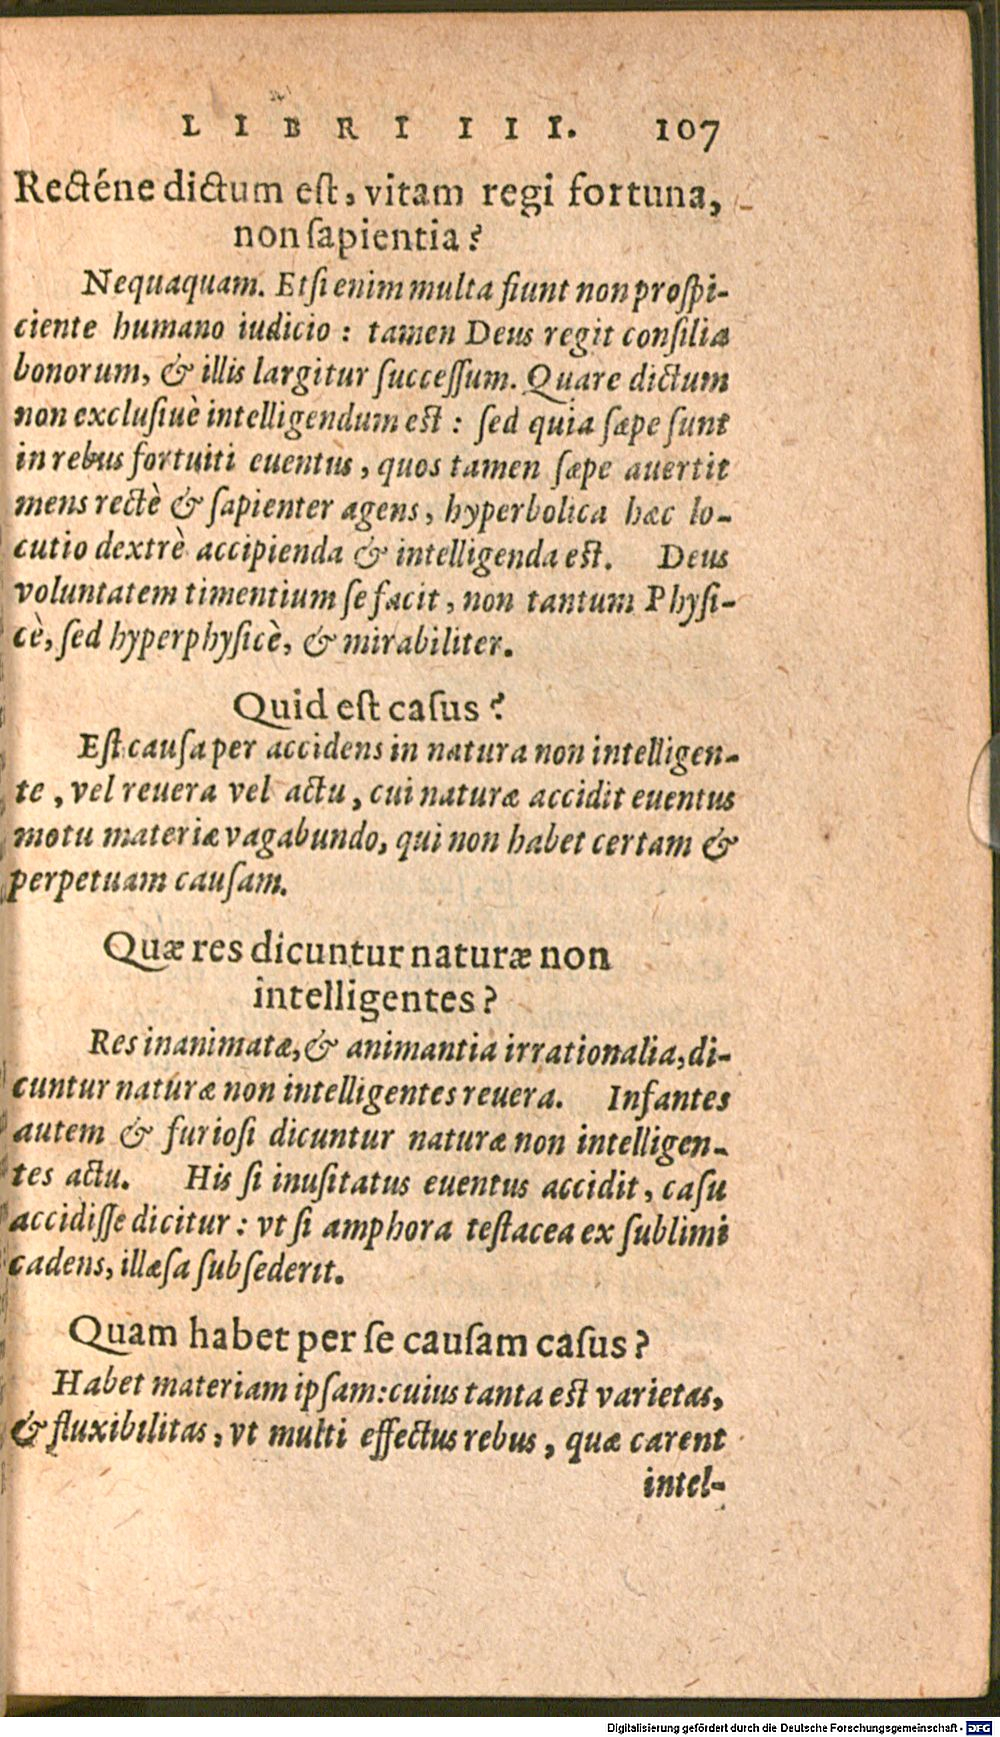 LIBRI III. 107
Recténe dictum eſt, vitam regi fortuna,
non ſapientia?
Nequaquam. Etſi enim multa fiunt non proſpi-
ciente humano iudicio: tamen Deus regit conſilia
bonorum, & illis largitur ſucceſſum. Quare dictum
non excluſiuè intelligendum eſt: ſed quia ſæpe ſunt
in rebus fortuiti euentus, quos tamen ſæpe auertit
mens rectè & ſapienter agens, hyperbolica hæc lo-
cutio dextrè accipienda & intelligenda eſt. Deus
voluntatem timentium ſe facit, non tantum Phyſi-
cè, ſed hyperphyſicè, & mirabiliter.
Quid eſt caſus?
Eſt cauſa per accidens in natura non intelligen-
te, vel reuera vel actu, cui naturæ accidit euentus
motu materiæ vagabundo, qui non habet certam &
perpetuam cauſam.
Quæ res dicuntur naturæ non
intelligentes?
Res inanimatæ, & animantia irrationalia, di-
cuntur naturæ non intelligentes reuera. Infantes
autem & furioſi dicuntur naturæ non intelligen-
tes actu. His ſi inuſitatus euentus accidit, caſu
accidiſſe dicitur: vt ſi amphora teſtacea ex ſublimi
cadens, illæſa ſubſederit.
Quam habet per ſe cauſam caſus?
Habet materiam ipſam: cuius tanta eſt varietas,
& fluxibilitas, vt multi effectus rebus, quæ carent
intel-
Digitalisierung gefördert durch die Deutsche Forschungsgemeinschaft - DFG